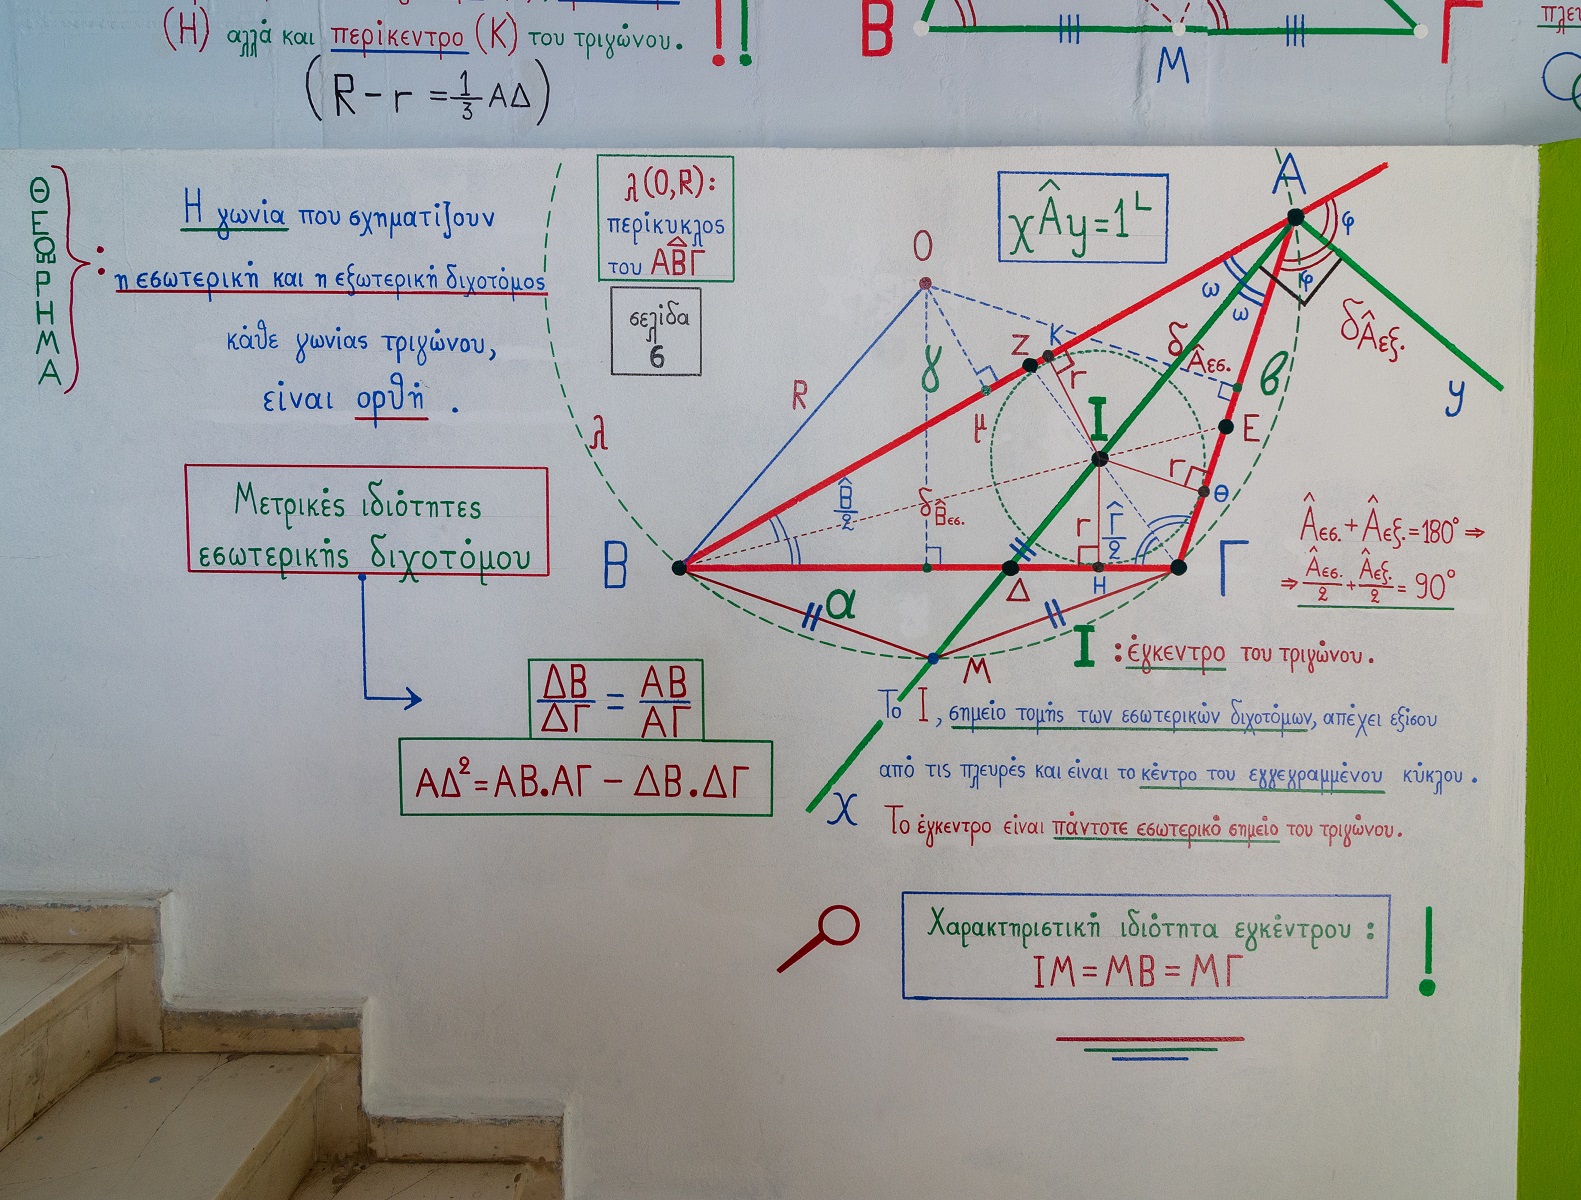 (Η) αλλά και περίκεντρο (Κ) του τριγώνου. !!
(R - r = 1/3 ΑΔ)
Β Μ Γ
ΘΕΩΡΗΜΑ :
Η γωνία που σχηματίζουν
η εσωτερική και η εξωτερική διχοτόμος
κάθε γωνίας τριγώνου,
είναι ορθή .
λ(Ο,R):
περίκυκλος
του ΑΒΓ
σελίδα
6
xÂy = 1∟
Α
φ
φ
ω
ω
δÂεξ.
y
Ο
Ζ
Κ
r
δÂες.
β
γ
R
λ
μ
Ι
Ε
r
Θ
B̂/2
δB̂ες.
r
Γ̂/2
Β
Γ
Δ
Η
α
Μ
x
Μετρικές ιδιότητες
εσωτερικής διχοτόμου
ΔΒ/ΔΓ = ΑΒ/ΑΓ
ΑΔ² = ΑΒ.ΑΓ - ΔΒ.ΔΓ
Âες. + Âεξ. = 180° ⇒
⇒ Âες./2 + Âεξ./2 = 90°
Ι : έγκεντρο του τριγώνου.
Το Ι, σημείο τομής των εσωτερικών διχοτόμων, απέχει εξίσου
από τις πλευρές και είναι το κέντρο του εγγεγραμμένου κύκλου.
Το έγκεντρο είναι πάντοτε εσωτερικό σημείο του τριγώνου.
Χαρακτηριστική ιδιότητα εγκέντρου :
ΙΜ = ΜΒ = ΜΓ
!